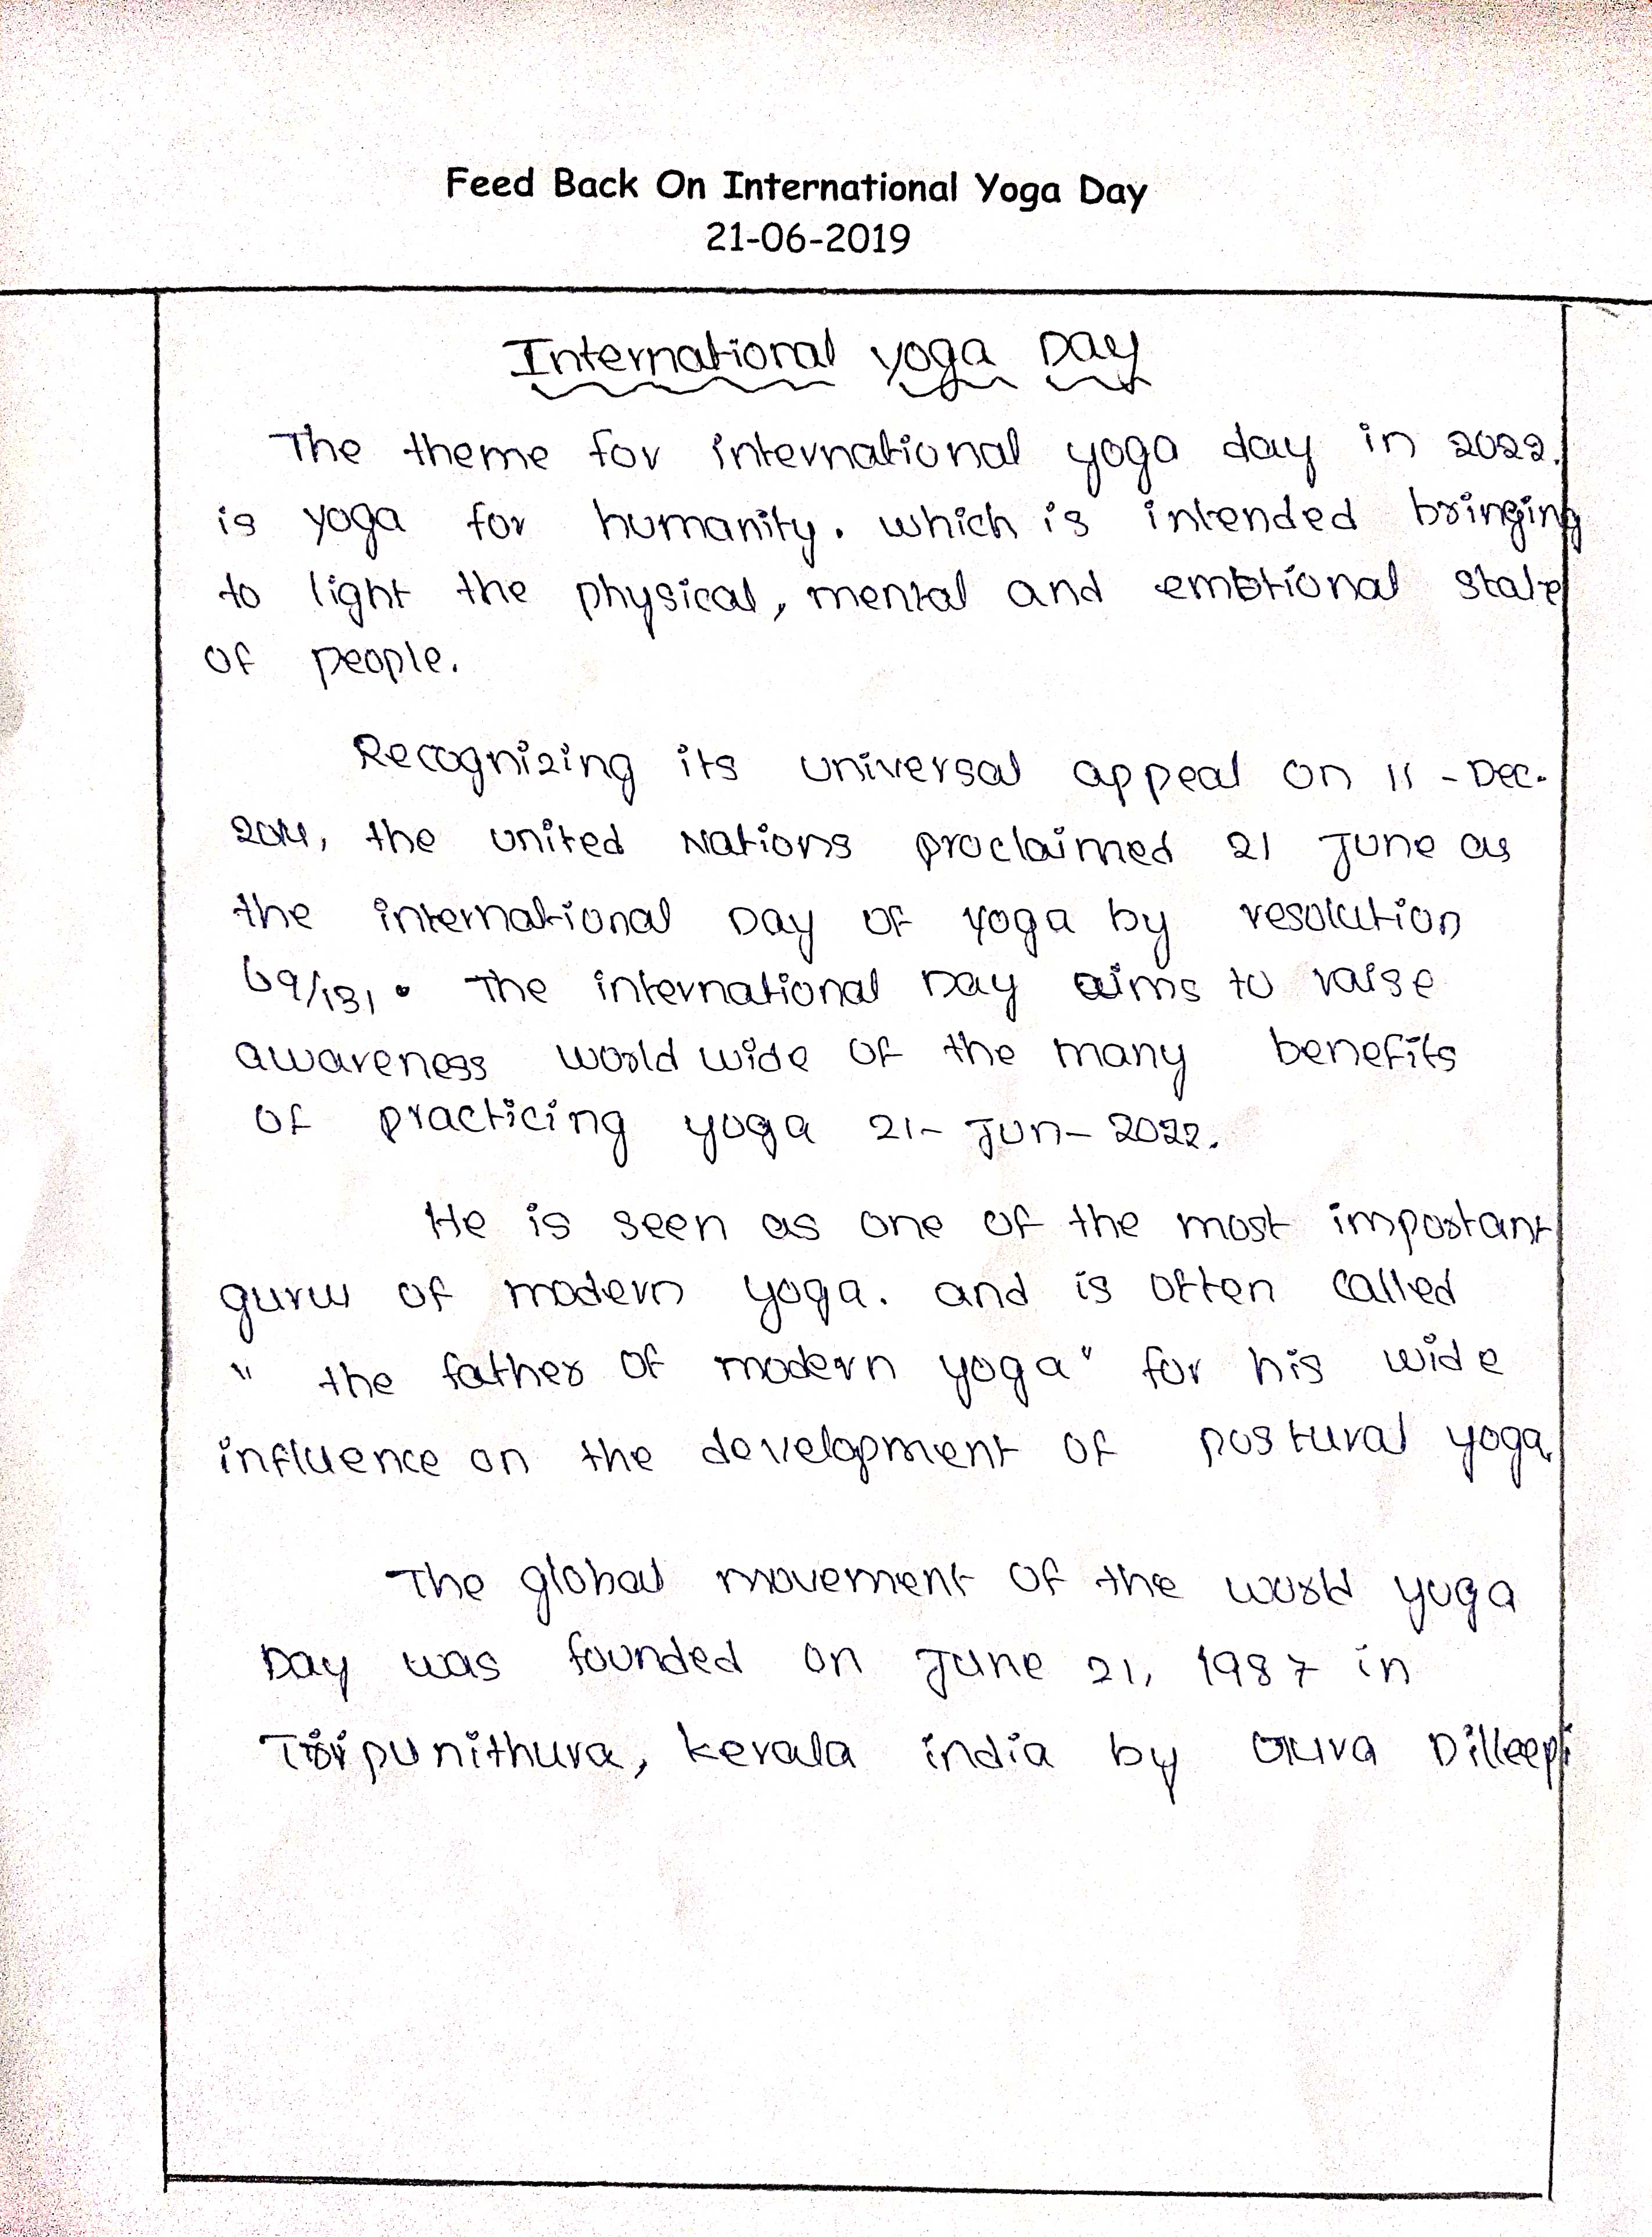 Feed Back On International Yoga Day
21-06-2019
International yoga Day
The theme for international yoga day in 2022.
is yoga for humanity. which is intended bringing
to light the physical, mental and emotional state
of people.
Recognizing its universal appeal on 11 - Dec.
2014, the united Nations proclaimed 21 June as
the international Day of yoga by resolution
69/131. The international Day aims to raise
awareness world wide of the many benefits
of practicing yoga 21- Jun- 2022.
He is seen as one of the most important
guru of modern yoga. and is often called
" the father of modern yoga" for his wide
influence on the development of postural yoga.
The global movement of the world yoga
Day was founded on June 21, 1987 in
Tripunithura, kerala india by Guru Dilleepi